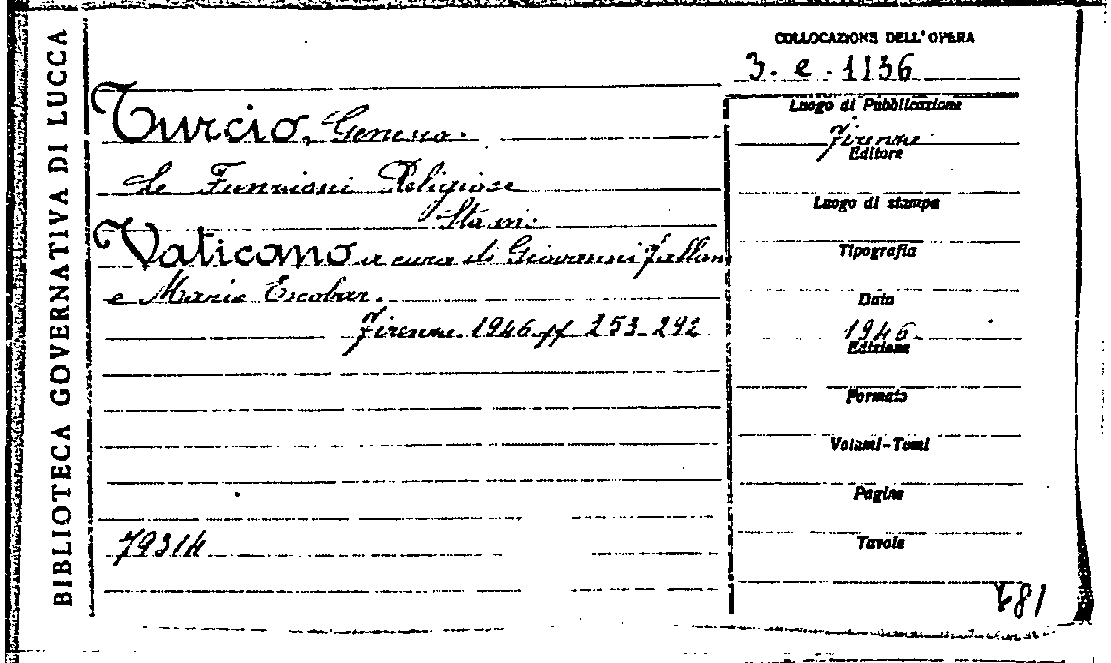 BIBLIOTECA GOVERNATIVA DI LUCCA
COLLOCAZIONE DELL'OPERA
3. e. 1136
Turcio, Genesio.
Le Funzioni Religiose
Sta in:
Vaticano a cura di Giovanni Fallani
e Mario Escobar.
Firenze 1946 pp 253-292
79314
Luogo di Pubblicazione
Firenze
Editore
Luogo di stampa
Tipografia
Data
1946
Edizione
Formato
Volumi-Tomi
Pagine
Tavole